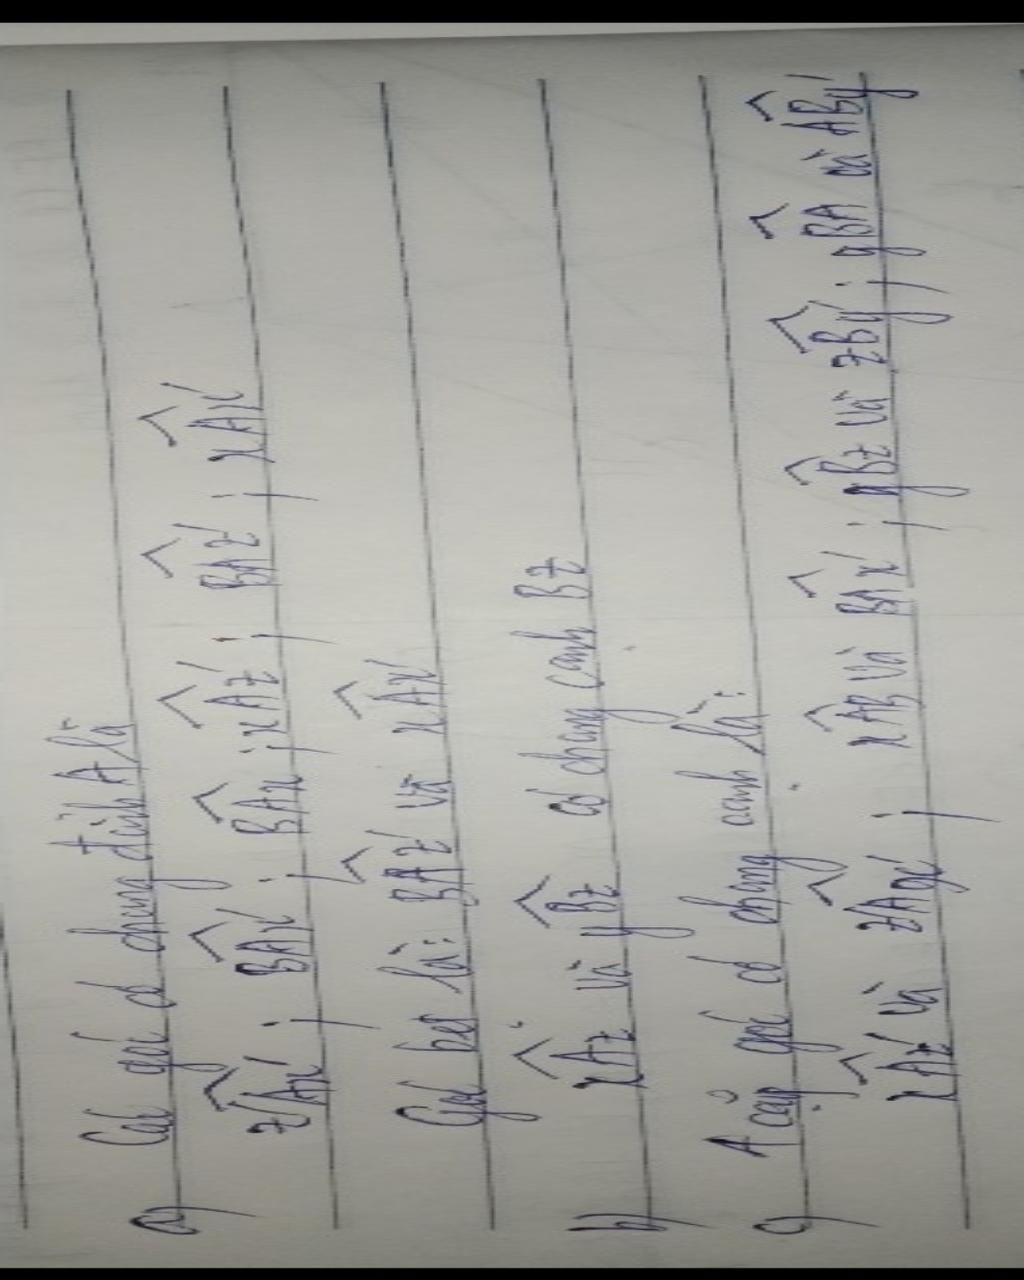 a) Các góc có chung đỉnh A là
z'Ax' ; BAx' ; BAx ; xAz' ; BAz' ; xAx'
Góc bẹt là: BAz' và xAx'
b) xAz và yBz có chung cạnh Bz
c) 4 cặp góc có chung cạnh là:
xAz' và z'Ax' ; xAB và BAx' ; yBz và zBy' ; yBA và ABy'